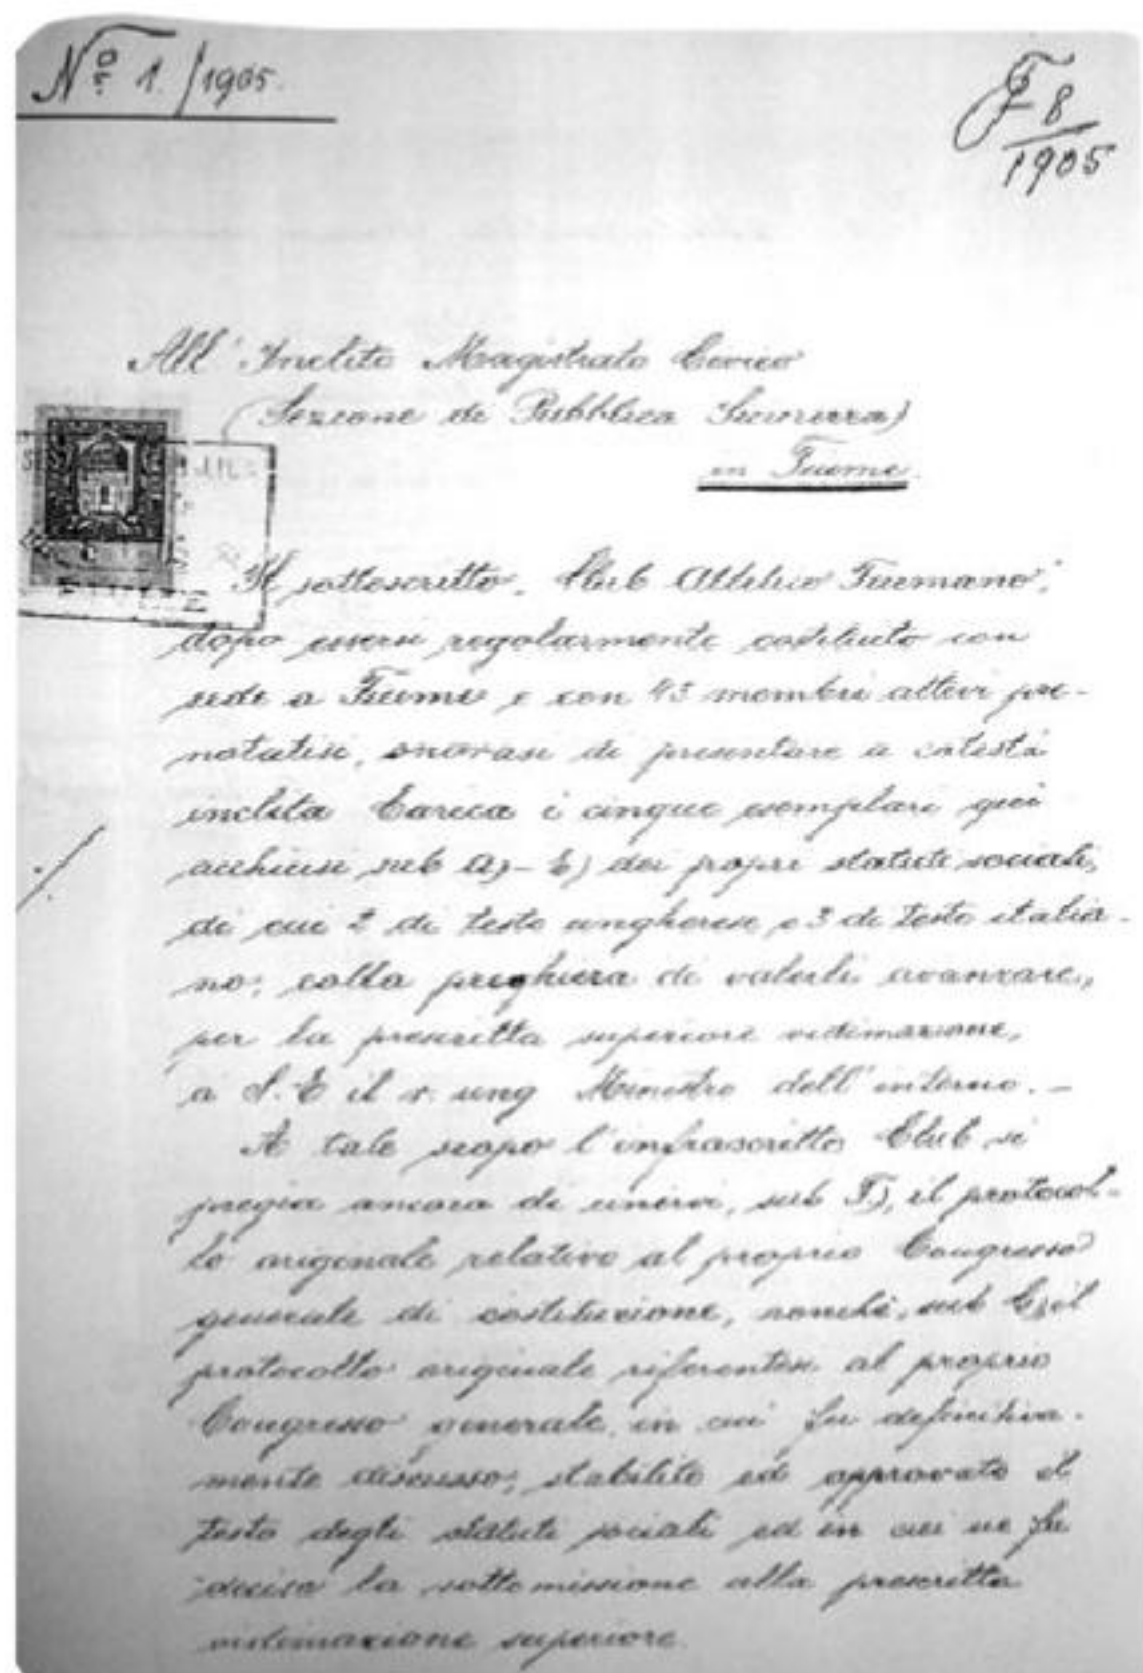 No. 1./1905.
F 8
1905
All'Inclito Magistrato Civico
(Sezione di Pubblica Sicurezza)
in Fiume.
Il sottoscritto „Club Atletico Fiumano",
dopo essersi regolarmente costituito con
sede a Fiume e con 43 membri attivi pre-
notatisi, onorasi di presentare a cotestà
inclita Carica i cinque esemplari qui
acchiusi sub A)-E) dei propri statuti sociali,
di cui 2 di testo ungherese e 3 di testo italia-
no, colla preghiera di volerli avanzare,
per la prescritta superiore vidimazione,
a S. E il r. ung Ministro dell'interno. –
A tale scopo l'infrascritto Club si
pregia ancora di unirvi, sub F), il protocol-
lo originale relativo al proprio Congresso
generale di costituzione, nonchè, sub G) il
protocollo originale riferentesi al proprio
Congresso generale, in cui fu definitiva-
mente discusso, stabilito ed approvato il
testo degli statuti sociali ed in cui ne fu
decisa la sottomissione alla prescritta
vidimazione superiore.